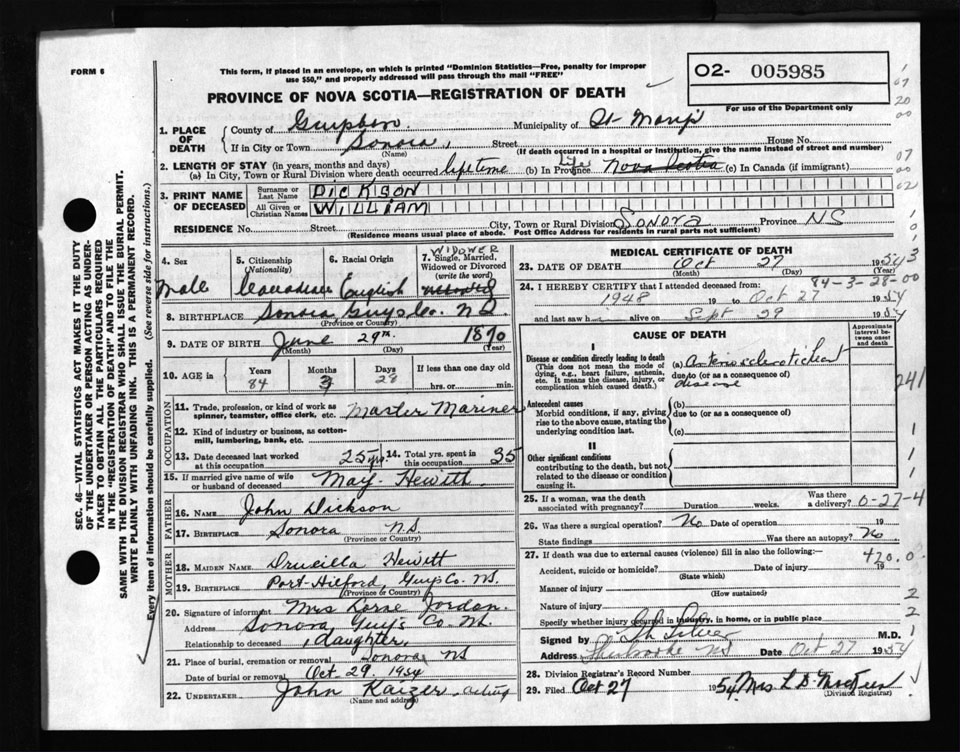 FORM 6
This form, if placed in an envelope, on which is printed "Dominion Statistics—Free, penalty for improper
use $50," and properly addressed will pass through the mail "FREE"
O2- 005985
PROVINCE OF NOVA SCOTIA—REGISTRATION OF DEATH
For use of the Department only
1. PLACE OF DEATH
County of Guysboro Municipality of St Mary's
If in City or Town Sonora, Street House No.
(Name) (If death occurred in a hospital or institution, give the name instead of street and number)
2. LENGTH OF STAY (in years, months and days)
(a) In City, Town or Rural Division where death occurred lifetime (b) In Province Life Nova Scotia (c) In Canada (if immigrant)
3. PRINT NAME OF DECEASED
Surname or Last Name DICKSON
All Given or Christian Names WILLIAM
RESIDENCE No. Street City, Town or Rural Division Sonora Province NS
(Residence means usual place of abode. Post Office Address for residents in rural parts not sufficient)
4. Sex
Male
5. Citizenship
(Nationality)
Canadian
6. Racial Origin
English
WIDOWER
7. Single, Married,
Widowed or Divorced
(write the word)
8. BIRTHPLACE Sonora Guys Co. N.S.
(Province or Country)
9. DATE OF BIRTH June 29th 1870
(Month) (Day) (Year)
10. AGE in
Years Months Days If less than one day
84 3 28 hrs. or min.
OCCUPATION
11. Trade, profession, or kind of work as Master Mariner
spinner, teamster, office clerk, etc.
12. Kind of industry or business, as cotton-
mill, lumbering, bank, etc.
13. Date deceased last worked
at this occupation 25 yrs.
14. Total yrs. spent in
this occupation 35
15. If married give name of wife
or husband of deceased May Hewitt
FATHER
16. Name John Dickson
17. Birthplace Sonora N.S.
(Province or Country)
MOTHER
18. MAIDEN NAME Drucilla Hewitt
19. BIRTHPLACE Port Hilford, Guys Co. N.S.
(Province or Country)
20. Signature of informant Mrs Lorne Jordan.
Address Sonora Guys Co N.S.
Relationship to deceased daughter
21. Place of burial, cremation or removal Sonora NS
Date of burial or removal Oct. 29. 1954
22. UNDERTAKER John Kaizer, acting
(Name and address)
MEDICAL CERTIFICATE OF DEATH
23. DATE OF DEATH Oct 27 1954
(Month) (Day) (Year)
84-3-28-00
24. I HEREBY CERTIFY that I attended deceased from:
1948 19 to Oct 27 1954
and last saw h alive on Sept 29 1954
CAUSE OF DEATH
Approximate interval between onset and death
I
Disease or condition directly leading to death
(This does not mean the mode of dying, e.g., heart failure, asthenia, etc. It means the disease, injury, or complication which caused death.)
(a) Arteriosclerotic heart
due to (or as a consequence of)
disease
Antecedent causes
Morbid conditions, if any, giving rise to the above cause, stating the underlying condition last.
(b)
due to (or as a consequence of)
(c)
II
Other significant conditions
contributing to the death, but not related to the disease or condition causing it.
25. If a woman, was the death
associated with pregnancy? Duration weeks. Was there
a delivery? 0-27-4
26. Was there surgical operation? No Date of operation 19
State findings Was there an autopsy? No.
27. If death was due to external causes (violence) fill in also the following:—
420.0
Accident, suicide or homicide? Date of injury 19
(State which)
Manner of injury
(How sustained)
Nature of injury
Specify whether injury occurred in industry, in home, or in public place
Signed by M.D.
Address Sherbrooke NS Date Oct 27 1954
28. Division Registrar's Record Number
29. Filed Oct 27 1954 Mrs L.D.
(Division Registrar)
SEC. 46—VITAL STATISTICS ACT MAKES IT THE DUTY
OF THE UNDERTAKER OR PERSON ACTING AS UNDER-
TAKER TO OBTAIN ALL THE PARTICULARS REQUIRED
IN THE "REGISTRATION OF DEATH" AND TO FILE THE
SAME WITH THE DIVISION REGISTRAR WHO SHALL ISSUE THE BURIAL PERMIT.
WRITE PLAINLY WITH UNFADING INK. THIS IS A PERMANENT RECORD.
Every item of information should be carefully supplied. (See reverse side for instructions.)